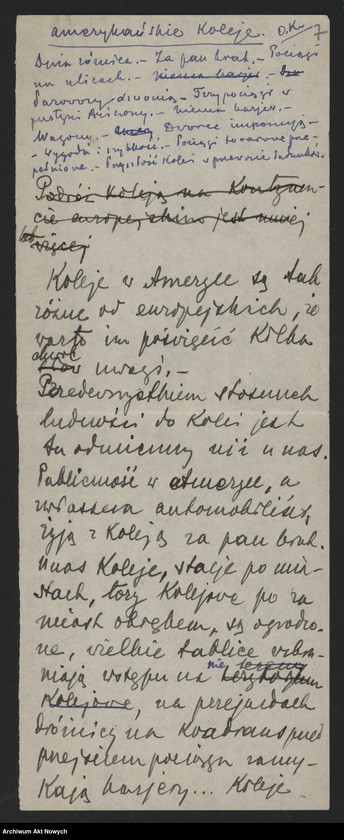 amerykańskie Koleje. O.K. 7
Duża różnica. – Za pan brat. – Pociągi
na ulicach. – Niema barjer. –
Parowozy dzwonią – Trzy pociągi w
pustyni Arizony. – niema barjer. –
Wagony. – Dworce imponują –
– Wygoda i szybkość. – Pociągi towarowe prze-
pełnione. – Przyszłość Kolei w przewozie ładunków.
Podróż Koleją na Kontynen-
cie europejskim jest mniej
lub
więcej
Koleje w Ameryce są tak
różne od europejskich, że
warto im poświęcić Kilka
słów uwagi. –
Przedewszystkiem stosunek
ludności do Kolei jest
tu odmienny niż u nas.
Publiczność w Ameryce, a
zwłaszcza automobiliści,
żyją z Koleją za pan brat.
U nas Koleje, stacje po mia-
stach, tory Kolejowe po za
miast obrębem, są ogrodzo-
ne, wielkie tablice wzbra-
niają wstępu na nie
Kolejowe, na przejazdach
dróżnicy na Kwadrans przed
przejściem pociągu zamy-
Kają barjery... Koleje
Archiwum Akt Nowych